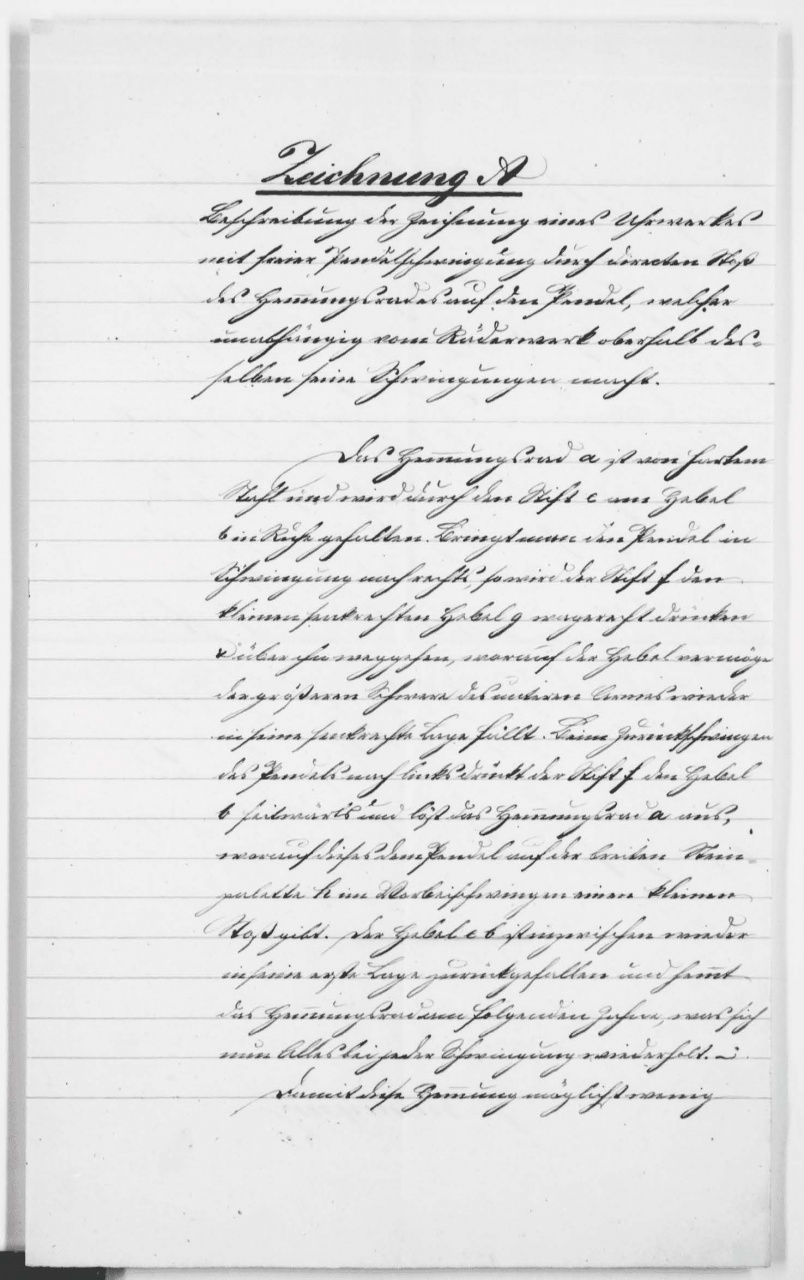 Zeichnung A
Beschreibung der Zeichnung eines Uhrwerkes
mit freier Pendelschwingung durch directen Stoß
des Hem̅ungsrades auf den Pendel, welcher
unabhängig vom Räderwerk oberhalb des-
selben seine Schwingungen macht.
Das Hem̅ungsrad a ist von hartem
Stahl und wird durch den Stift c am Hebel
b in Ruhe gehalten. Bringt man den Pendel in
Schwingung nach rechts, so wird der Stift f den
kleinen senkrechten Hebel g wagerecht drücken
& über ihn weggehen, worauf der Hebel vermöge
der größeren Schwere des unteren Armes wieder
in seine senkrechte Lage fällt. Beim Zurückschwingen
des Pendels nach links drückt der Stift f den Hebel
b seitwärts und löst das Hem̅ungsrad a aus,
worauf dieses dem Pendel auf der breiten Stein-
palette h im Vorbeischwingen einen kleinen
Stoß gibt. Der Hebel c b ist inzwischen wieder
in seine erste Lage zurückgefallen und hem̅t
das Hem̅ungsrad am folgenden Zahne, was sich
nun Alles bei jeder Schwingung wiederholt. –
Damit diese Hem̅ung möglichst wenig